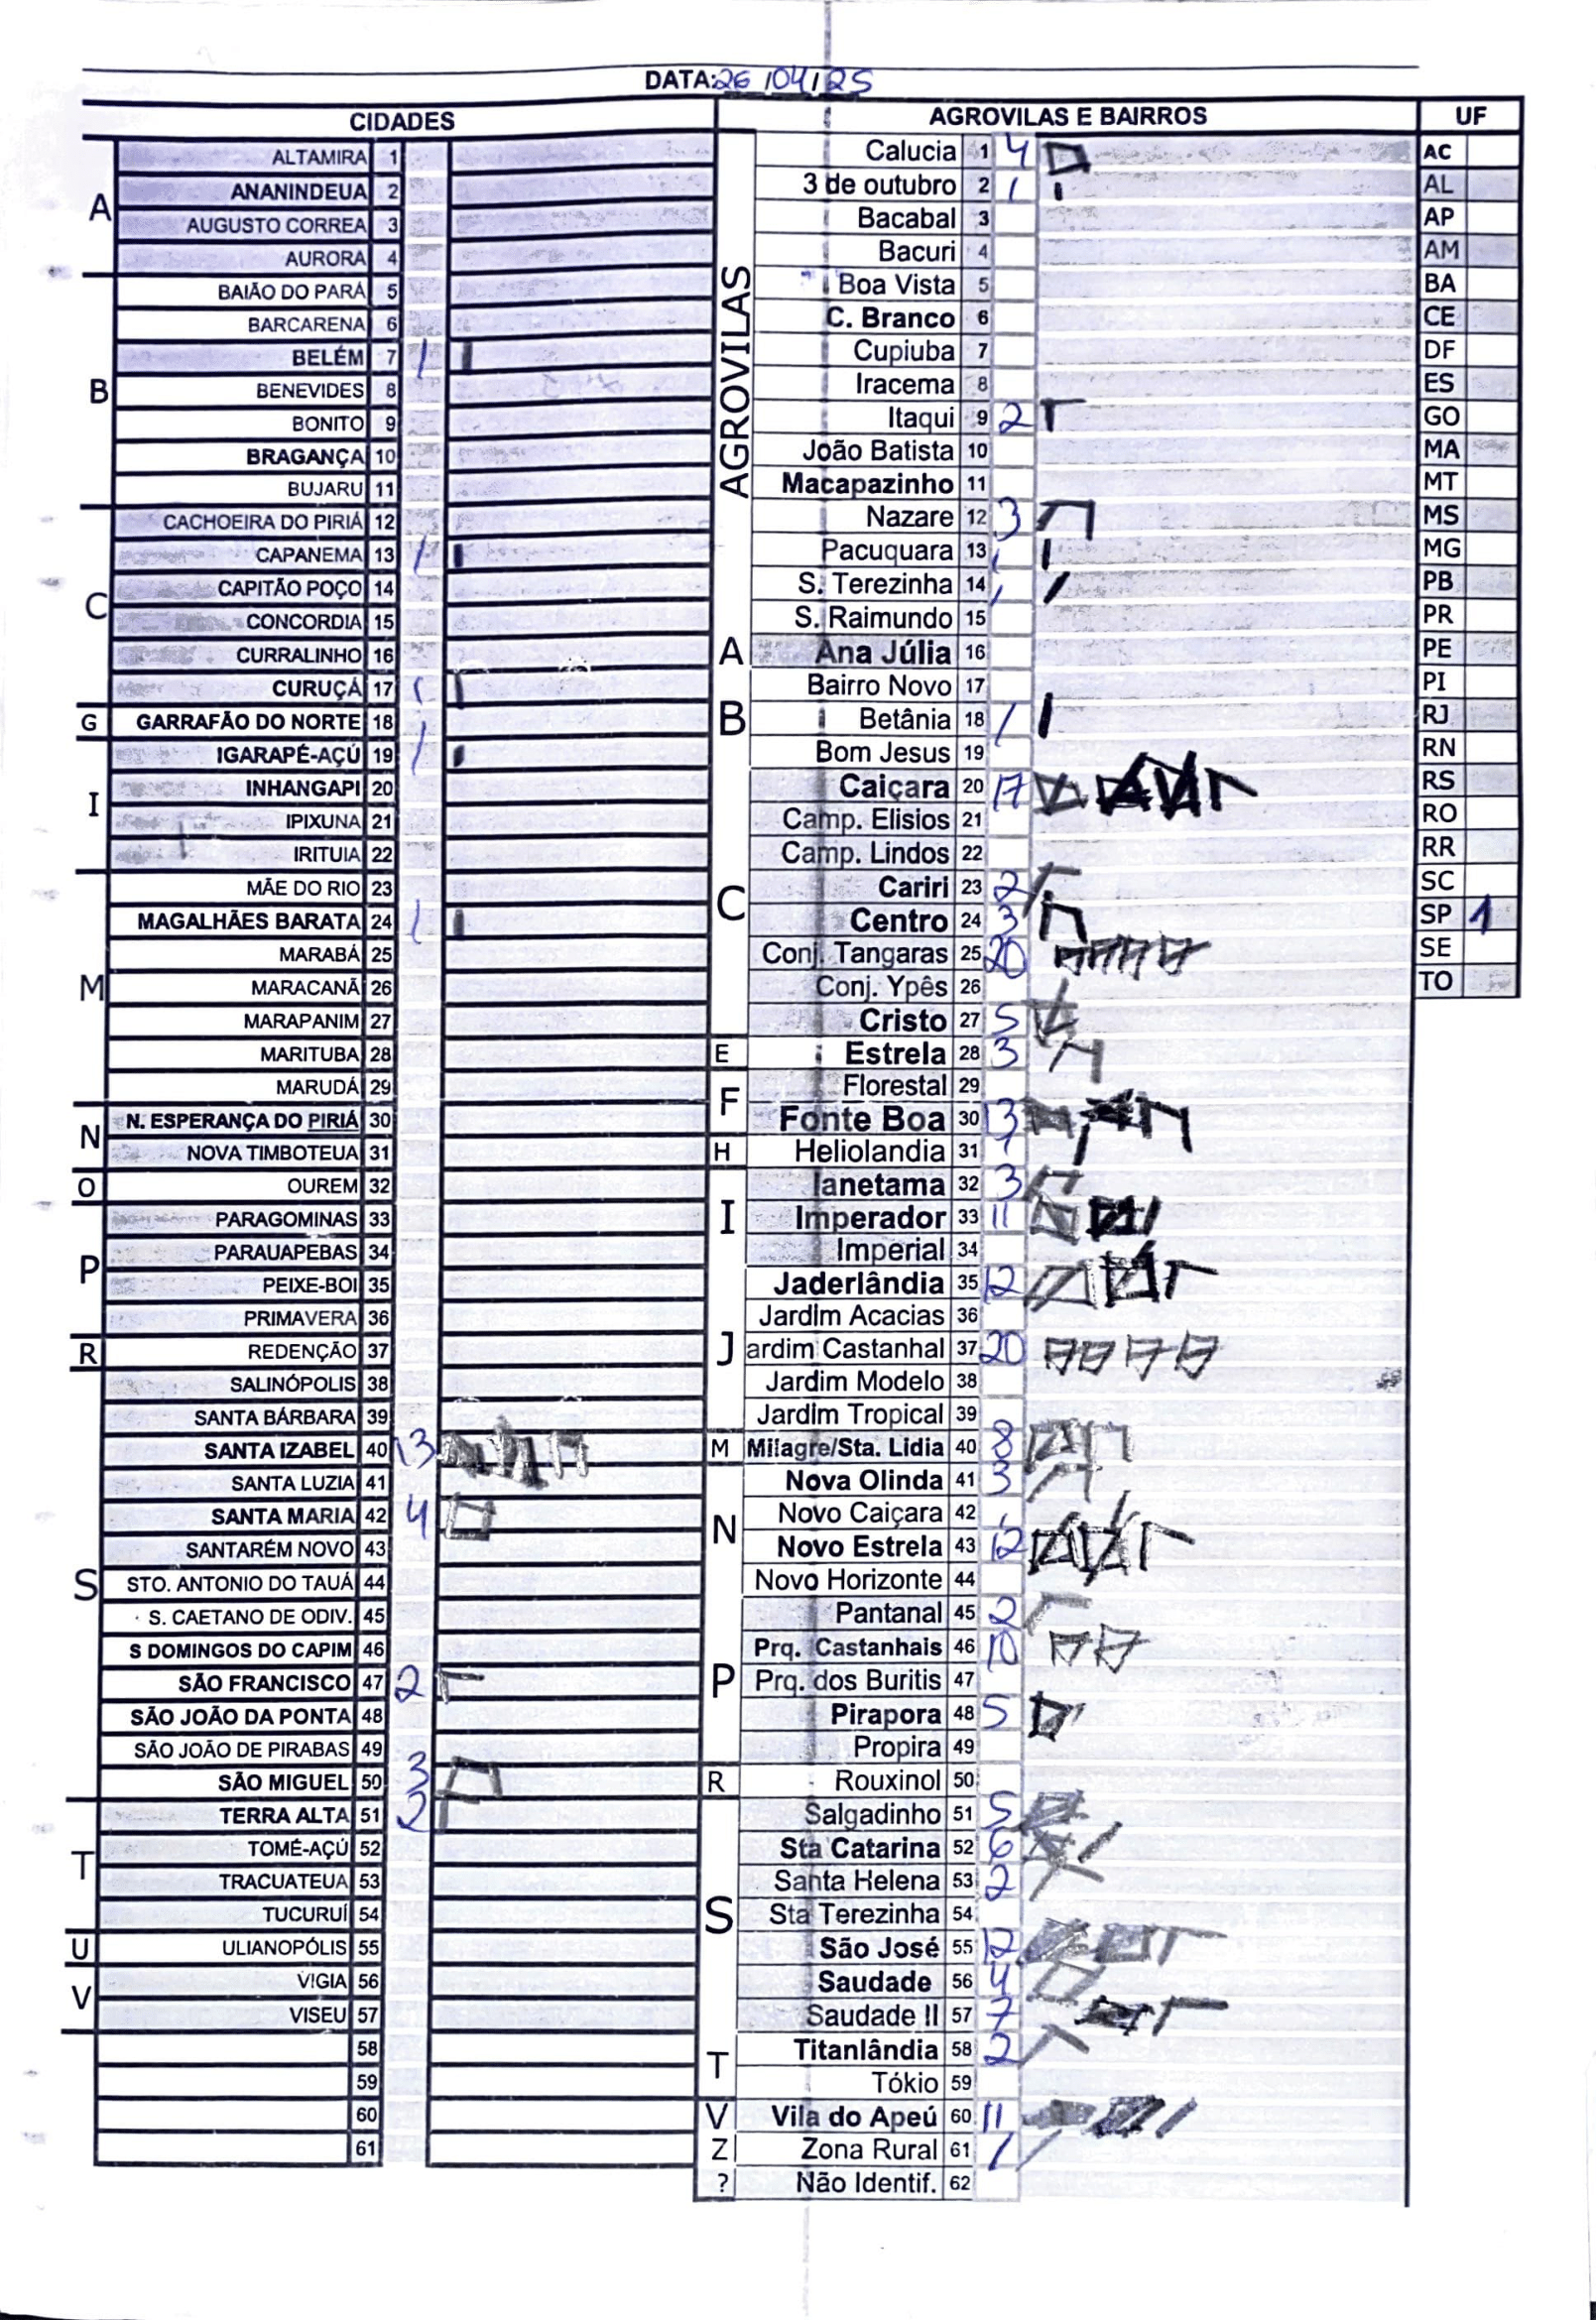 DATA: 26/04/25
CIDADES
A
ALTAMIRA 1
ANANINDEUA 2
AUGUSTO CORREA 3
AURORA 4
B
BAIÃO DO PARÁ 5
BARCARENA 6
BELÉM 7 1
BENEVIDES 8
BONITO 9
BRAGANÇA 10
BUJARU 11
C
CACHOEIRA DO PIRIÁ 12
CAPANEMA 13 1
CAPITÃO POÇO 14
CONCORDIA 15
CURRALINHO 16
CURUÇÁ 17 1
G
GARRAFÃO DO NORTE 18
I
IGARAPÉ-AÇÚ 19 1
INHANGAPI 20
IPIXUNA 21
IRITUIA 22
M
MÃE DO RIO 23
MAGALHÃES BARATA 24 1
MARABÁ 25
MARACANÃ 26
MARAPANIM 27
MARITUBA 28
MARUDÁ 29
N
N. ESPERANÇA DO PIRIÁ 30
NOVA TIMBOTEUA 31
O
OUREM 32
P
PARAGOMINAS 33
PARAUAPEBAS 34
PEIXE-BOI 35
PRIMAVERA 36
R
REDENÇÃO 37
S
SALINÓPOLIS 38
SANTA BÁRBARA 39
SANTA IZABEL 40 13
SANTA LUZIA 41
SANTA MARIA 42 4
SANTARÉM NOVO 43
STO. ANTONIO DO TAUÁ 44
S. CAETANO DE ODIV. 45
S DOMINGOS DO CAPIM 46
SÃO FRANCISCO 47 2
SÃO JOÃO DA PONTA 48
SÃO JOÃO DE PIRABAS 49
SÃO MIGUEL 50 3
T
TERRA ALTA 51 2
TOMÉ-AÇÚ 52
TRACUATEUA 53
TUCURUÍ 54
U
ULIANOPÓLIS 55
V
VIGIA 56
VISEU 57
58
59
60
61
AGROVILAS E BAIRROS
AGROVILAS
Calucia 1 4
3 de outubro 2 1
Bacabal 3
Bacuri 4
Boa Vista 5
C. Branco 6
Cupiuba 7
Iracema 8
Itaqui 9 2
João Batista 10
Macapazinho 11
Nazare 12 3
Pacuquara 13 1
S. Terezinha 14 1
S. Raimundo 15
A
Ana Júlia 16
B
Bairro Novo 17
Betânia 18 1
Bom Jesus 19
C
Caiçara 20 17
Camp. Elisios 21
Camp. Lindos 22
Cariri 23 2
Centro 24 3
Conj. Tangaras 25 20
Conj. Ypês 26
Cristo 27 5
E
Estrela 28 3
F
Florestal 29
Fonte Boa 30 13
H
Heliolandia 31 1
I
Ianetama 32 3
Imperador 33 11
Imperial 34
J
Jaderlândia 35 12
Jardim Acacias 36
ardim Castanhal 37 20
Jardim Modelo 38
Jardim Tropical 39
M
Milagre/Sta. Lidia 40 8
N
Nova Olinda 41 3
Novo Caiçara 42
Novo Estrela 43 12
Novo Horizonte 44
P
Pantanal 45 2
Prq. Castanhais 46 10
Prq. dos Buritis 47
Pirapora 48 5
Propira 49
R
Rouxinol 50
S
Salgadinho 51 5
Sta Catarina 52 6
Santa Helena 53 2
Sta Terezinha 54
São José 55 12
Saudade 56 4
Saudade II 57 7
T
Titanlândia 58 2
Tókio 59
V
Vila do Apeú 60 11
Z
Zona Rural 61 1
?
Não Identif. 62
UF
AC
AL
AP
AM
BA
CE
DF
ES
GO
MA
MT
MS
MG
PB
PR
PE
PI
RJ
RN
RS
RO
RR
SC
SP 1
SE
TO